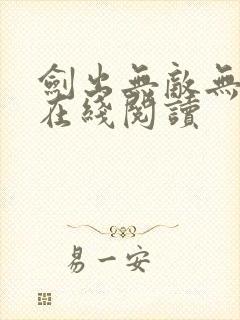 劍出無敵無
在綫閱讀
易一安